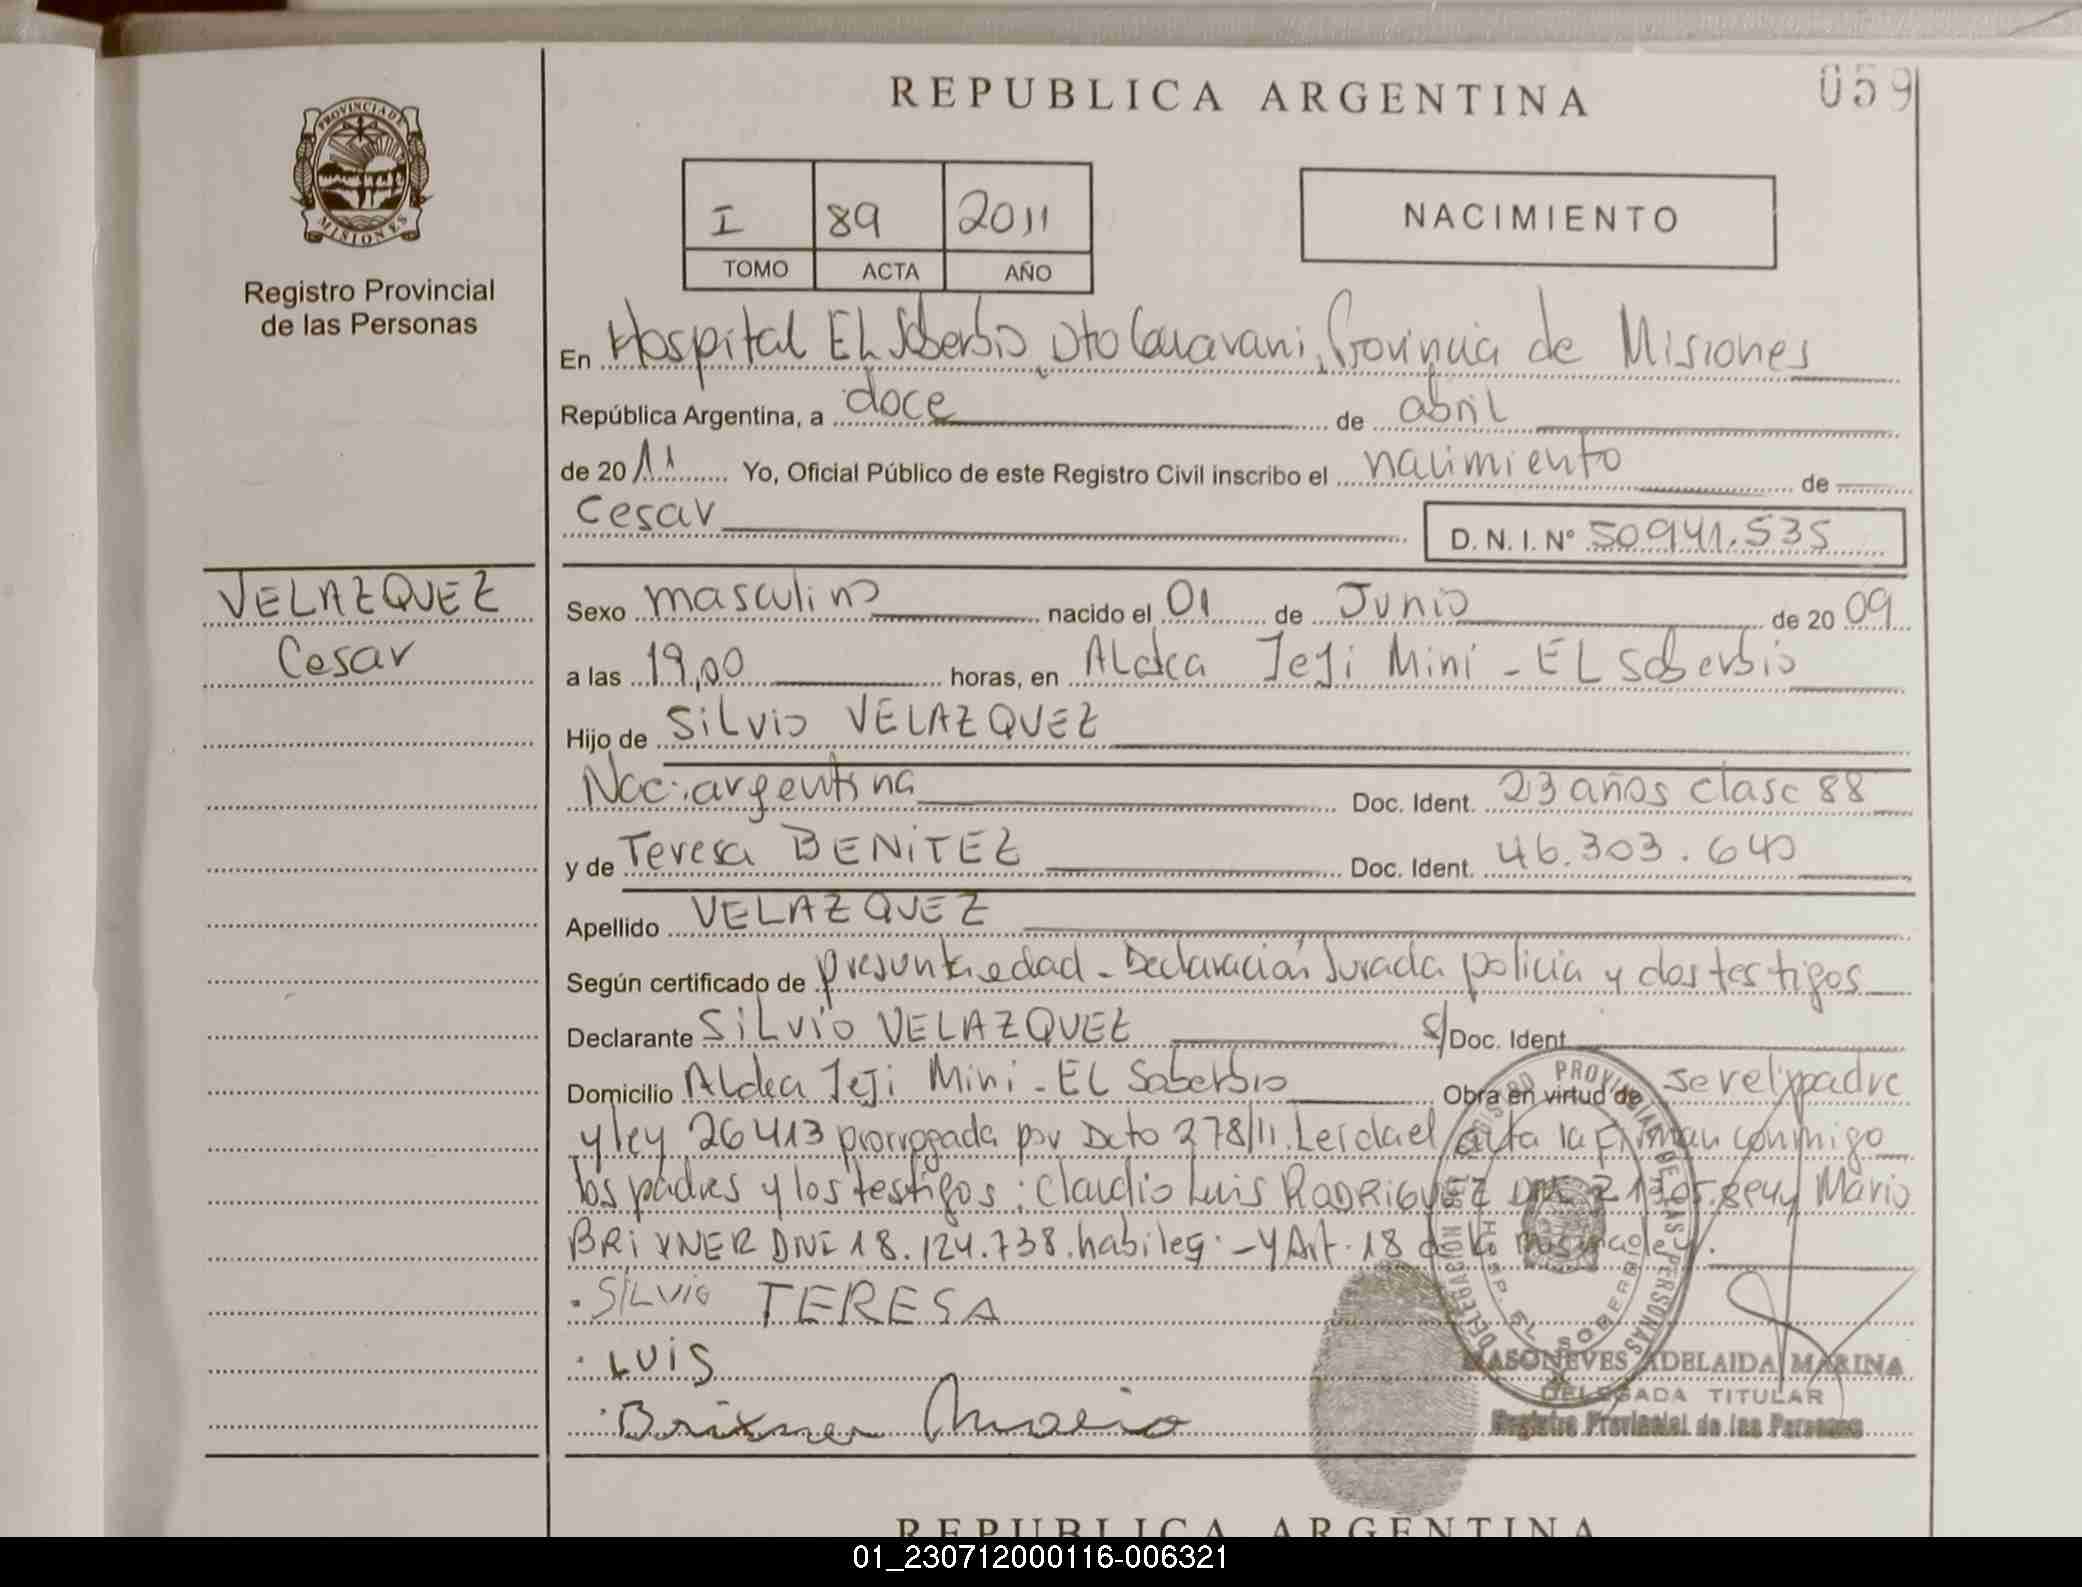 REPUBLICA ARGENTINA
059
PROVINCIA DE
MISIONES
Registro Provincial
de las Personas
I 89 2011
TOMO ACTA AÑO
NACIMIENTO
En Hospital EL Soberbio Dto Guaraní, Provincia de Misiones
República Argentina, a doce de abril
de 2011 Yo, Oficial Público de este Registro Civil inscribo el nacimiento de
Cesar
D. N. I. N° 50941.535
VELAZQUEZ
Cesar
Sexo masculino nacido el 01 de Junio de 2009
a las 19,00 horas, en ALdea Jeji Mini - EL Soberbio
Hijo de SiLvio VELAZQUEZ
Nac: argentina Doc. Ident. 23 años clase 88
y de Teresa BENiTEZ Doc. Ident. 46.303.640
Apellido VELAZQUEZ
Según certificado de presunta edad - Declaración Jurada policia y dos testigos
Declarante SiLvio VELAZQUEZ s/Doc. Ident
Domicilio ALdea Jeji Mini - EL Soberbio Obra en virtud de ser el padre
y ley 26413 prorrogada por Dcto 278/11. Leida el acta la firman conmigo
los padres y los testigos: Claudio Luis RODRIGUEZ DNI y Mario
BRiXNER DNI 18.124.738. habileg. - y Art. 18 de la misma ley.
SILVIO TERESA
LUIS
Brixner Mario
REGISTRO PROVINCIAL DE LAS PERSONAS
DELEGACION
HOSP. EL SOBERBIO
MASONEVES ADELAIDA MARINA
DELEGADA TITULAR
Registro Provincial de las Personas
REPUBLICA ARGENTINA
01_230712000116-006321